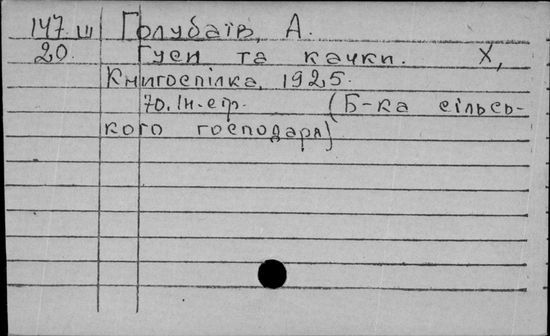 147.ш Голубаїв, А.
20. Гуси та качки. Х,
Книгоспілка, 1925.
70.Ін.стр. (Б-ка сільсь-
кого господаря)